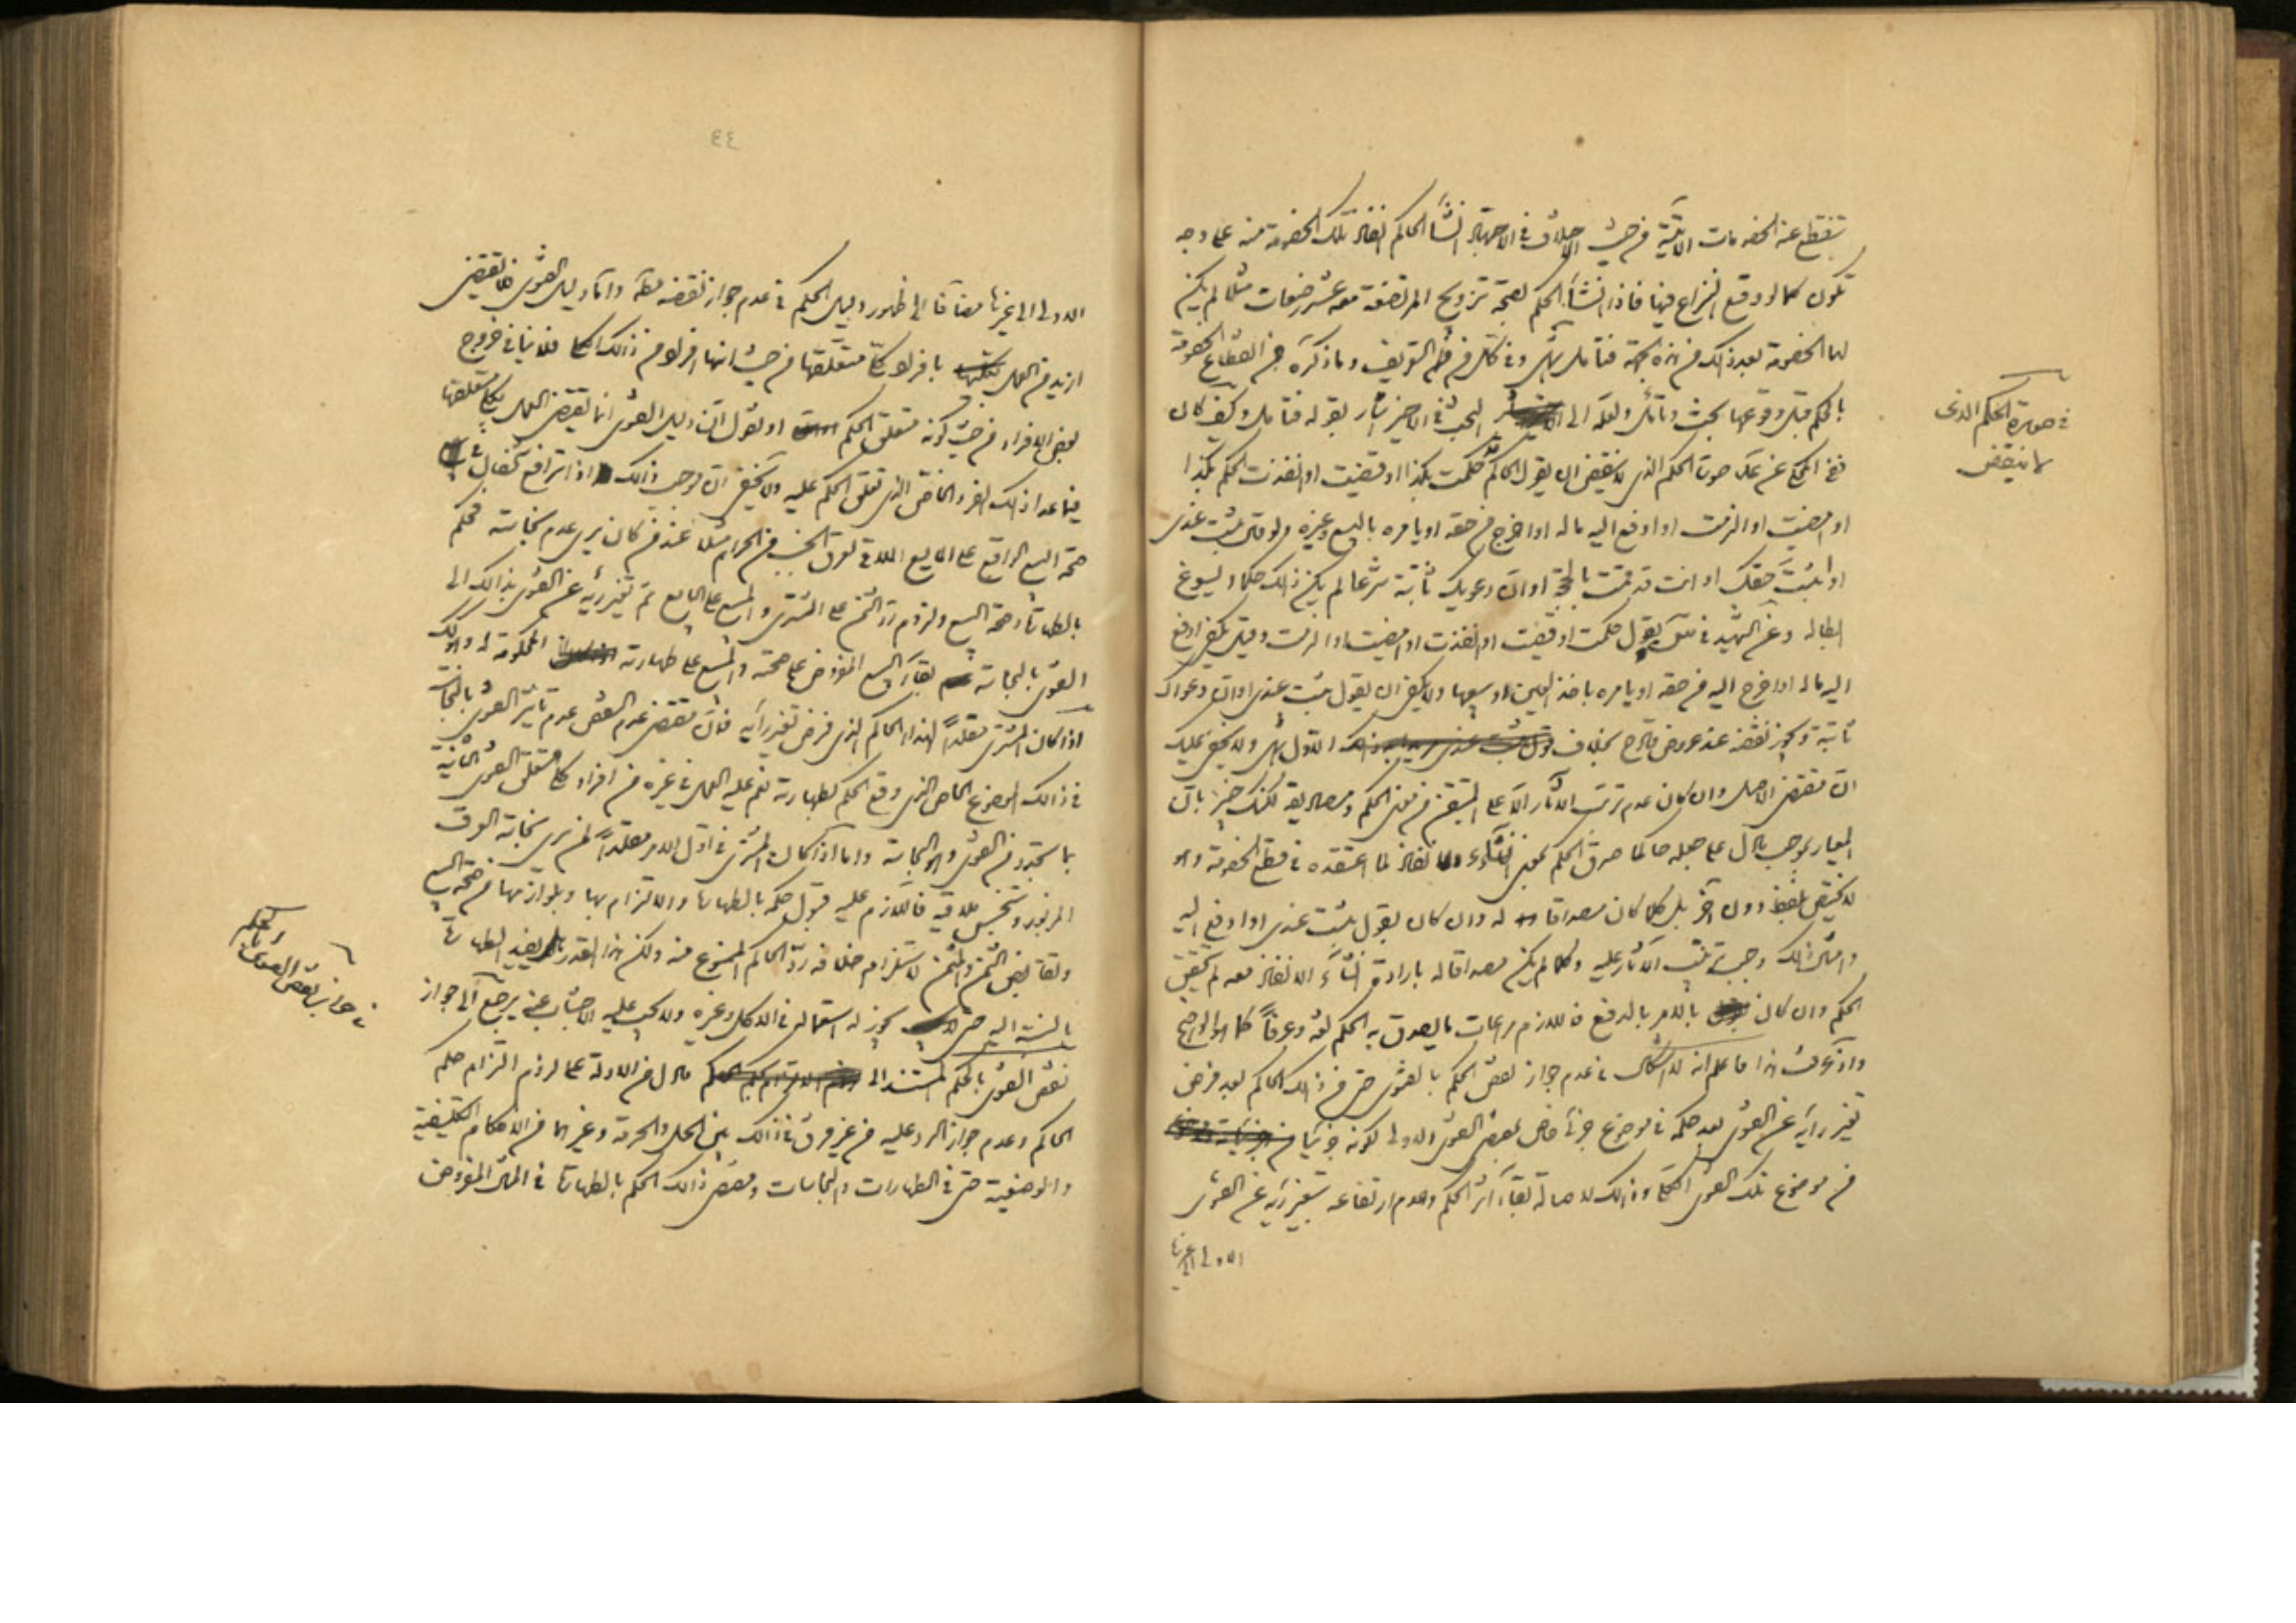 تنقطع عنه الخصومات الآتية من حيث الاختلاف في الاجتهاد انشأ الحاكم انفاذ تلك الخصومة منه على وجه
تكون كما لو وقع النزاع فيها فاذا انشأ الحكم بصحة تزويج المرتضعة معه عشر رضعات مثلا لم يكن
لها الخصومة بعد ذلك من هذه الجهة فتأمل وفي كل من التعريف وما ذكره من انقطاع الخصومة
بالحكم قبل وقوعها بحث وتأمل ولعله الى البحث في الاخير اشار بقوله فتأمل وكيف كان
صورة الحكم الذي لا ينقض ان يقول الحاكم قد حكمت بكذا او قضيت او انفذت الحكم بكذا
او امضيت او الزمت او ادفع اليه ماله او اخرج من حقه او يأمره بالبيع وغيره ولو قال ثبت عندي
او ثبت حقك او انت قد قمت بالحجة او ان دعويك ثابتة شرعا لم يكن ذلك حكما ويسوغ
ابطاله وعن الشهيد يقول حكمت او قضيت او انفذت او امضيت او الزمت وقيل يكفي ادفع
اليه ماله او اخرج اليه من حقه او يأمره باخذ العين او بيعها ولا يكفي ان يقول ثبت عندي او ان دعواك
ثابتة ويجوز نقضه عند عروض قادح بخلاف الاول ولا يخفى عليك
ان مقتضى الاصل وان كان عدم ترتب الآثار الا على المتيقن من معنى الحكم ومصاديقه لكنك خبير بان
المعيار بموجب ما دل على جعله حاكما صدق الحكم بمعنى انشاء انفاذ لما اعتقده في قطع الخصومة وهو
لا يختص بلفظ دون آخر بل كلما كان مصداقا له وان كان بقول ثبت عندي او ادفع اليه
وامثال ذلك وجب ترتب الآثار عليه وكلما لم يكن مصداقا له بارادة انشاء الانفاذ معه لم يتحقق
الحكم وان كان بالامر بالدفع فاللازم مراعات ما يصدق به الحكم لغة وعرفا كما هو الواضح
واذ عرفت هذا فاعلم انه لا اشكال في عدم جواز نقض الحكم بالفتوى حتى من ذلك الحاكم بعد فرض
تغير رأيه عن الفتوى بعد حكمه في موضوع جزئي خاص بمقتضى الفتوى الاولى لكونه جزئيا من
من موضوع تلك الفتوى الكلي وذلك لاصالة بقاء اثر الحكم وعدم ارتفاعه بتغير رأيه عن الفتوى
الاولى الى غيرها
في صورة الحكم الذي
لا ينقض
٤٤
الاولى الى غيرها مضافا الى ظهور دليل الحكم في عدم جواز نقضه مطلقا واما دليل الفتوى فلا يقتضي
ازيد من العمل بافراد كلي متعلقها من حيث انها افراد من ذلك الكلي فلا ينافي خروج
بعض الافراد من حيث كونه متعلق الحكم او نقول ان دليل الفتوى انما يقتضي العمل بكلي متعلقها
فيما عدا ذلك الفرد الخاص الذي تعلق الحكم عليه ولا يخفى ان موجب ذلك اذا ترافع شخصان في
صحة البيع الواقع على المايع الملاقي لعرق الجنب من الحرام مثلا عند من كان يرى عدم نجاسته فحكم
بالطهارة وصحة البيع ولزوم رد الثمن على المشتري والمبيع على البايع ثم تغير رأيه عن الفتوى بذلك الى
الفتوى بالنجاسة بقاء البيع المفروض على صحته والمبيع على طهارته المحكومة له وان كان
اذا كان المشتري مقلدا لهذا الحاكم الذي فرض تغير رأيه فان مقتضى عدم النقض عدم تأثير الفتوى بالنجاسة
في ذلك الموضوع الخاص الذي وقع الحكم بطهارته نعم عليه العمل في غيره من افراد كلي متعلق الفتوى الثانية
بما تجدد من الفتوى وهو النجاسة واما اذا كان المشتري في اول الامر مقلدا لمن يرى نجاسة العرق
المزبور وتنجس ملاقيه فاللازم عليه قبول حكمه بالطهارة والالتزام بها وبلوازمها من صحة البيع
وتقابض الثمن والمثمن لاستلزام خلافه رد الحاكم الممنوع منه ولكن هذا القدر يفيد الطهارة
بالنسبة اليه حتى يجوز له استعماله في الاكل وغيره ولا يجب عليه الاجتناب عنه يرجع الى جواز
نقض الفتوى بالحكم المستند الى ما دل من الادلة على لزوم التزام حكم
الحاكم وعدم جواز الرد عليه من غير فرق في ذلك بين الحل والحرمة وغيرهما من الاحكام التكليفية
والوضعية حتى في الطهارات والنجاسات ومقتضى ذلك الحكم بالطهارة في المثال المفروض
في جواز نقض الفتوى
بالحكم